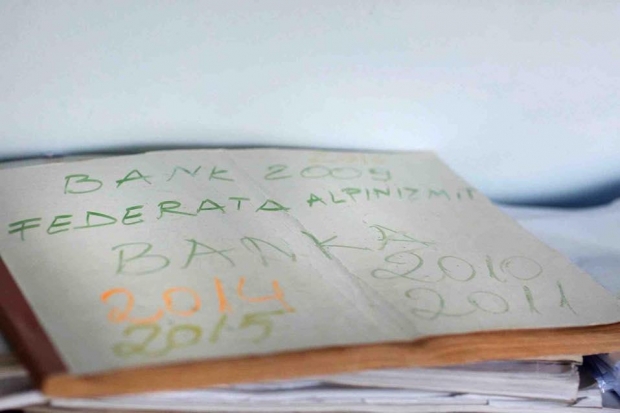 BANK 2009
FEDERATA ALPINIZMIT
BANKA
2010
2014
2011
2015